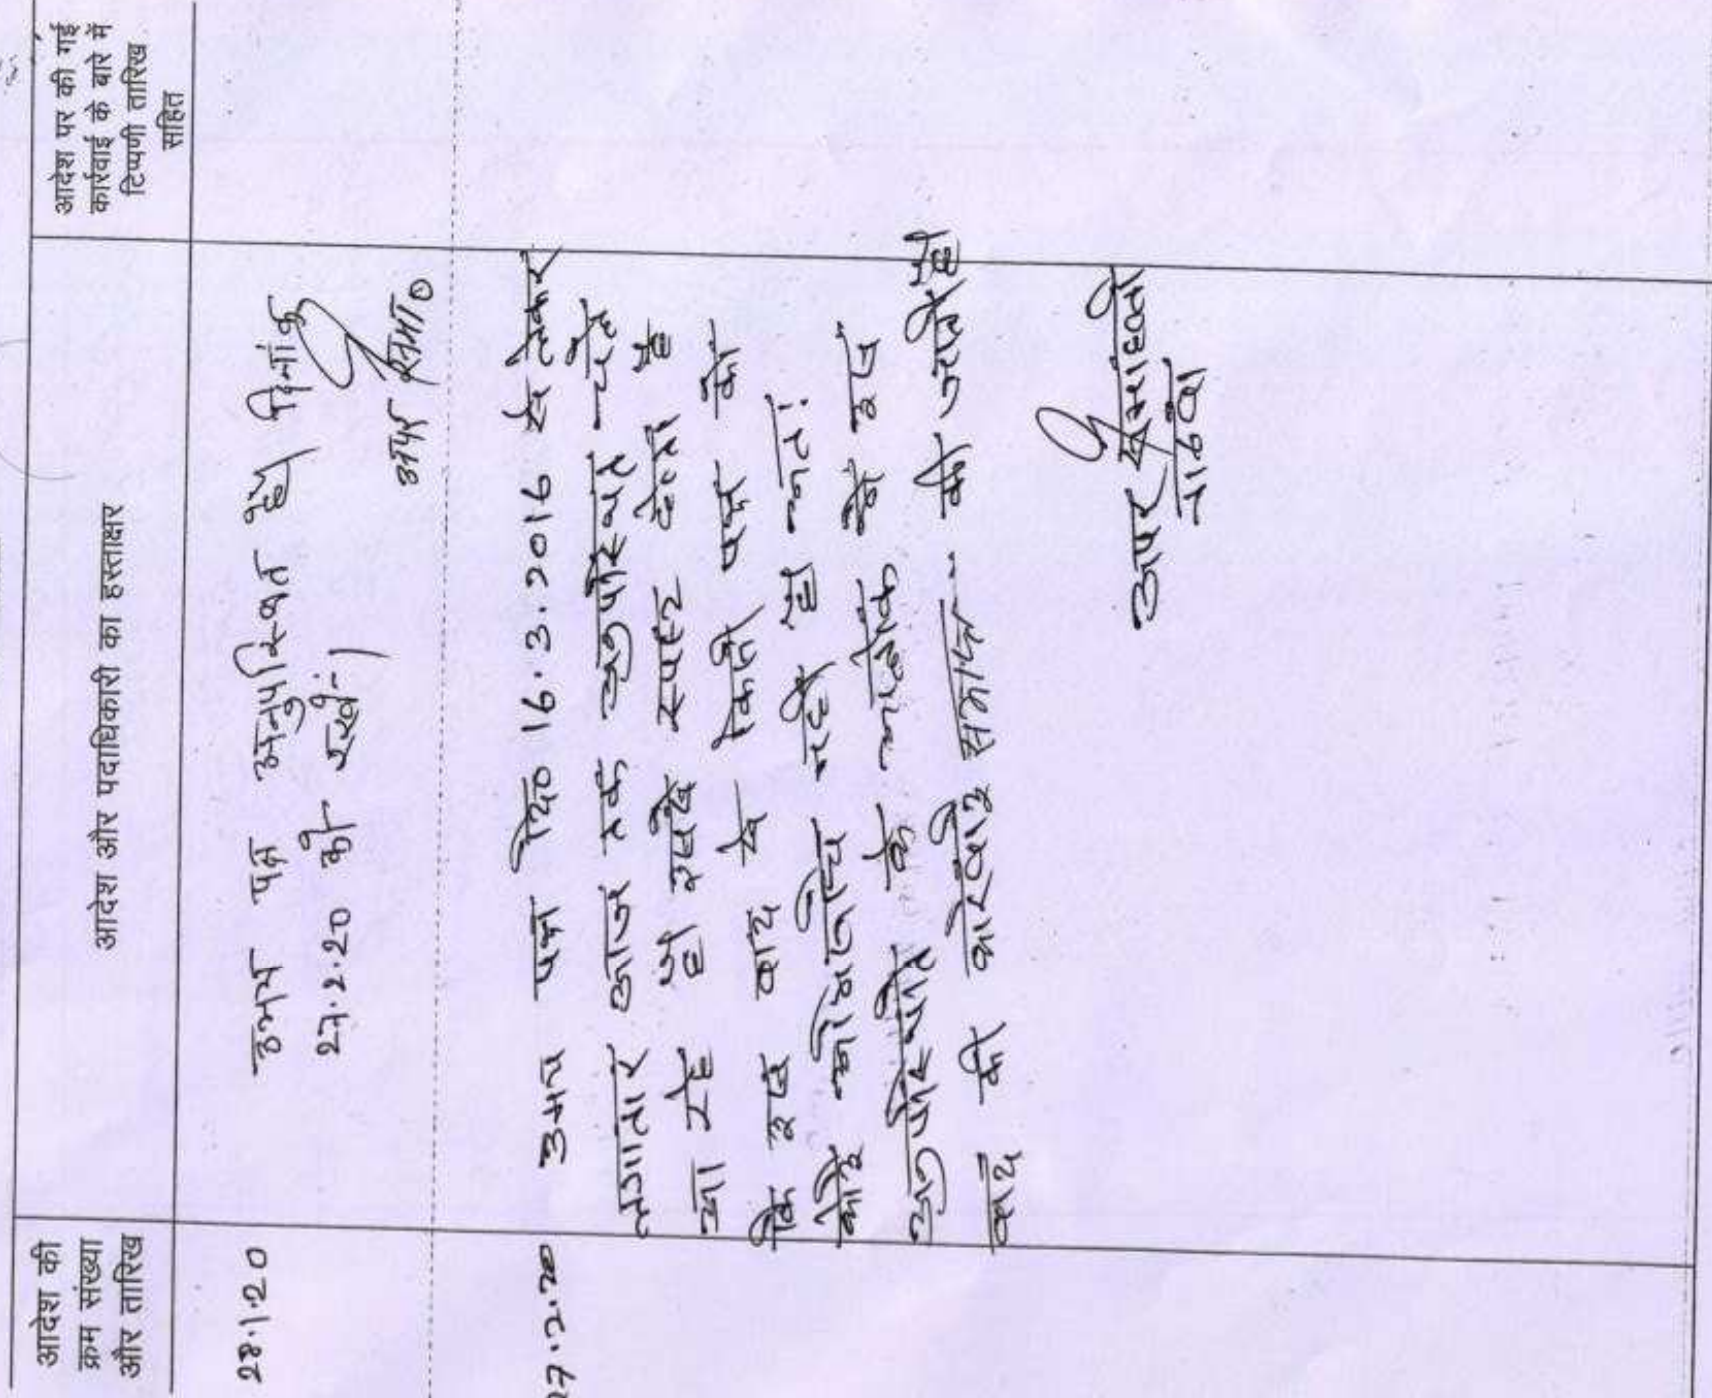 आदेश की
क्रम संख्या
और तारिख
आदेश और पदाधिकारी का हस्ताक्षर
आदेश पर की गई
कार्रवाई के बारे में
टिप्पणी तारिख
सहित
28.1.20
उभय पक्ष अनुपस्थित है। दिनांक
27.2.20 को रखें।
अपर समा०
27.2.20
उभय पक्ष दि० 16.3.2016 से लेकर
लगातार आज तक अनुपस्थित चले
आ रहे हैं इससे स्पष्ट होता है
कि इस वाद में किसी पक्ष को
कोई अभिरुचि नहीं है अतः
अनुपस्थिति के आलोक में इस
वाद की कारवाई समाप्त की जाती है।
अपर समाहर्ता